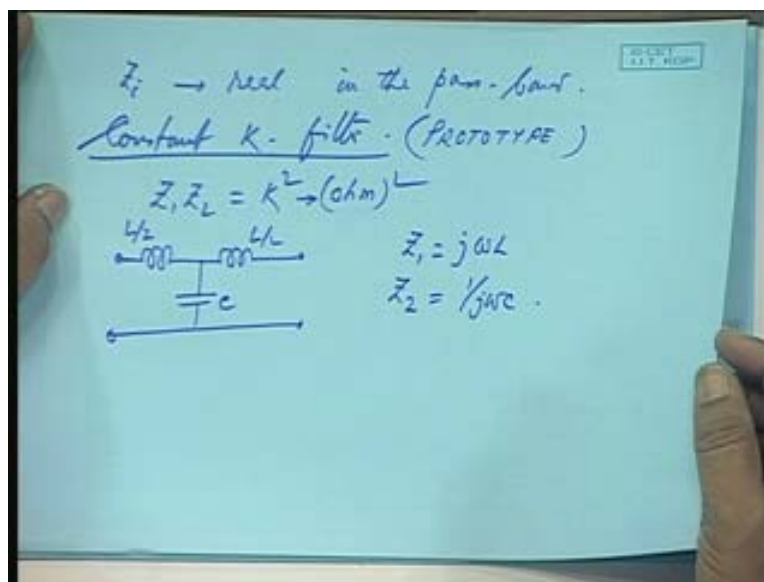 © CET
I.I.T. KGP
Zi → real in the pass-band.
Constant K-filter. (PROTOTYPE)
Z1Z2 = K² → (ohm)²
L/2 L/2
C
Z1 = jωL
Z2 = 1/jωc.